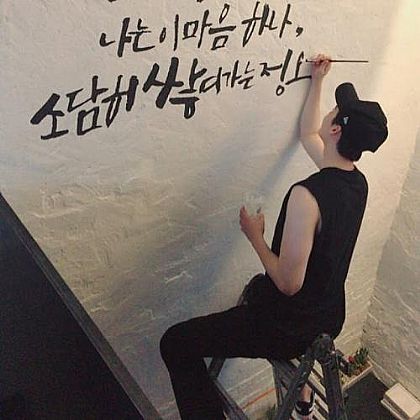 나는 이 마음 하나,
소담히 쌓여가는 정소